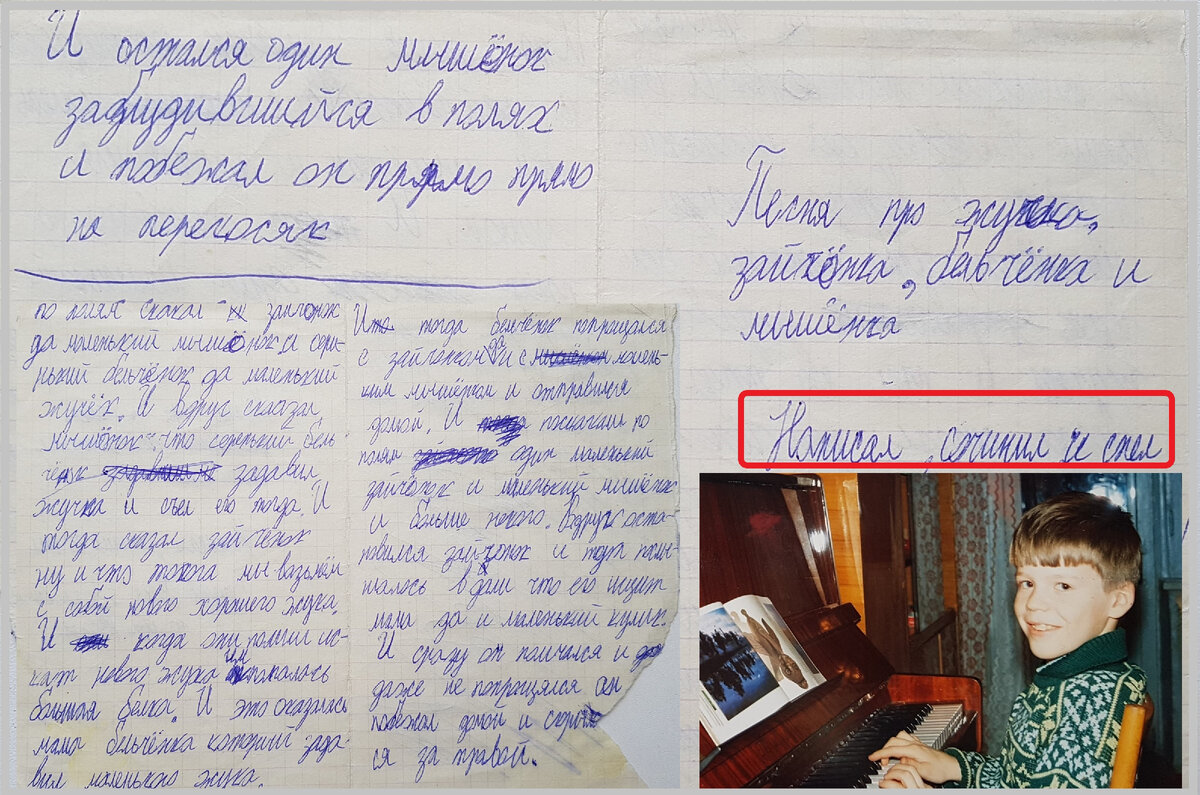 И остался один мышёнок
заблудившийся в полях
и побежал он прямо прямо
на перекосяк
по полям скакал зайчонок
да маленький мышёнок и сере-
нький бельчёнок да маленький
жучёк. И вдруг сказал
мышёнок: что серенький бель-
чёнк задавил
жучка и съел его тогда. И
тогда сказал зайчёнок
ну и что мы вазьмём
с собой нового хорошего жука.
И когда они пошли ис-
кать нового жука им попалось
большая белка. И это оказалась
мама бельчёнка который зада-
вил маленького жука.
И тогда бельчёнок попращался
с зайчонком да и с малень-
ким мышёнком и отправился
домой. И поскакали по
полям один маленький
зайчонок и маленький мышёнок
и больше некого. Вдруг оста-
новился зайчонок и тута послы-
шалось в дали что его ищит
мама да и маленький кулик.
И сразу он помчался и
даже не попращялся он
побежал домой и скрылся
ся за травой.
Песня про жучка,
зайчёнка, бельчёнка и
мышёнка
Написал, сочинил и спел